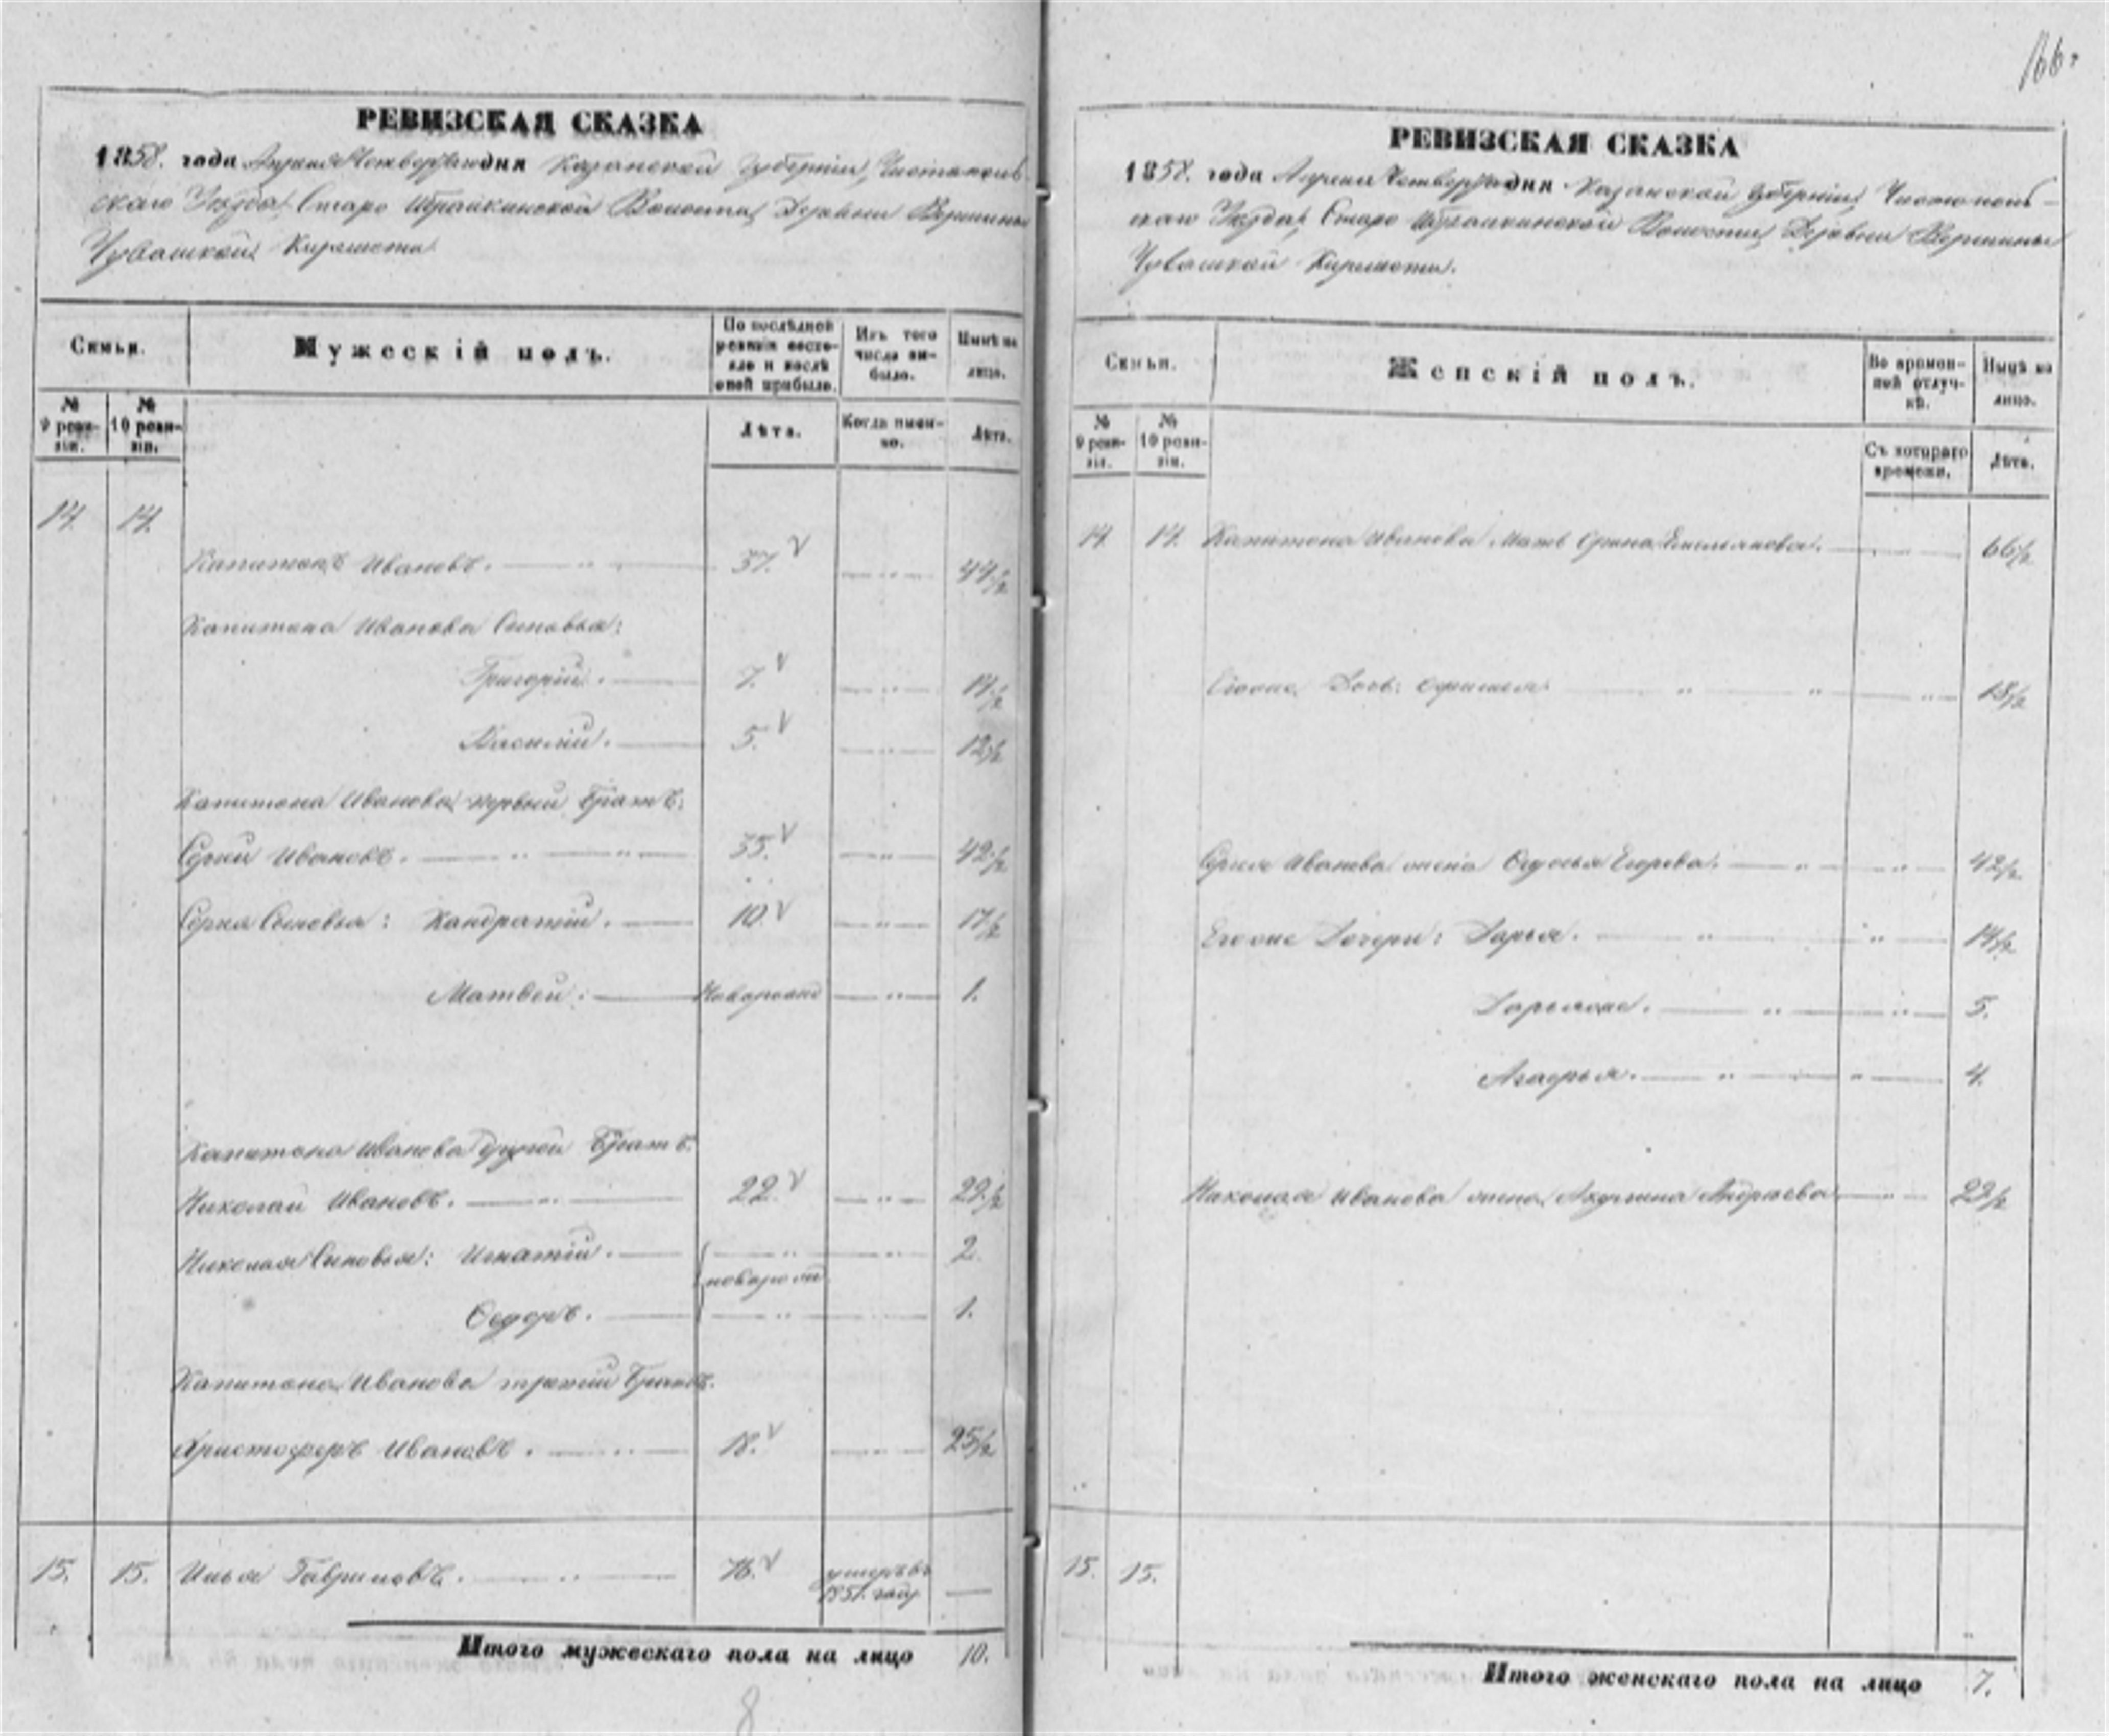 166.
РЕВИЗСКАЯ СКАЗКА
1858. года Апреля Четвертаго дня Казанской Губерніи, Чистополь-
скаго Уѣзда, Старо Ибрайкинской Волости, Деревни Вершины
Чувашкой Киремети
Семьи.
Мужескій полъ.
По послѣдней ревизіи состояло и послѣ оной прибыло.
Изъ того числа выбыло.
Нынѣ на лицо.
№ 9 ревизіи.
№ 10 ревизіи.
Лѣта.
Когда именно.
Лѣта.
14. 14.
Капитонъ Ивановъ. 37. 44 1/2
Капитона Иванова Сыновья:
Григорій. 7. 14 1/2
Василій. 5. 12 1/2
Капитона Иванова первый Братъ:
Сергѣй Ивановъ. 35. 42 1/2
Сергѣя Сыновья: Кандратій. 10. 17 1/2
Матвей: Новорожд 1.
Капитона Иванова другой Братъ:
Николай Ивановъ. 22. 29 1/2
Николая Сыновья: Игнатій. 2.
новорож
Ѳедоръ. 1.
Капитона Иванова третій Братъ.
Христофоръ Ивановъ. 18. 25 1/2
15. 15. Илья Гавриловъ. 76. умеръ въ
1851. году
Итого мужескаго пола на лицо 10.
8
РЕВИЗСКАЯ СКАЗКА
1858. года Апреля Четвертаго дня Казанской Губерніи, Чистополь-
скаго Уѣзда, Старо Ибрайкинской Волости, Деревни Вершины
Чувашкой Киремети.
Семьи.
Женскій полъ.
Во временной отлучкѣ.
Нынѣ на лицо.
№ 9 ревизіи.
№ 10 ревизіи.
Съ котораго времени.
Лѣта.
14. 14. Капитона Иванова Мать Орина Емельянова. 66 1/2
Егоже Дочь: 18 1/2
Сергѣя Иванова жена Ѳедосья Егорова. 42 1/2
Егоже Дочери: Дарья. 14 1/2
Дарьяже. 5.
4.
Николая Иванова жена Акулина Андреева 29 1/2
15. 15.
Итого женскаго пола на лицо 7.